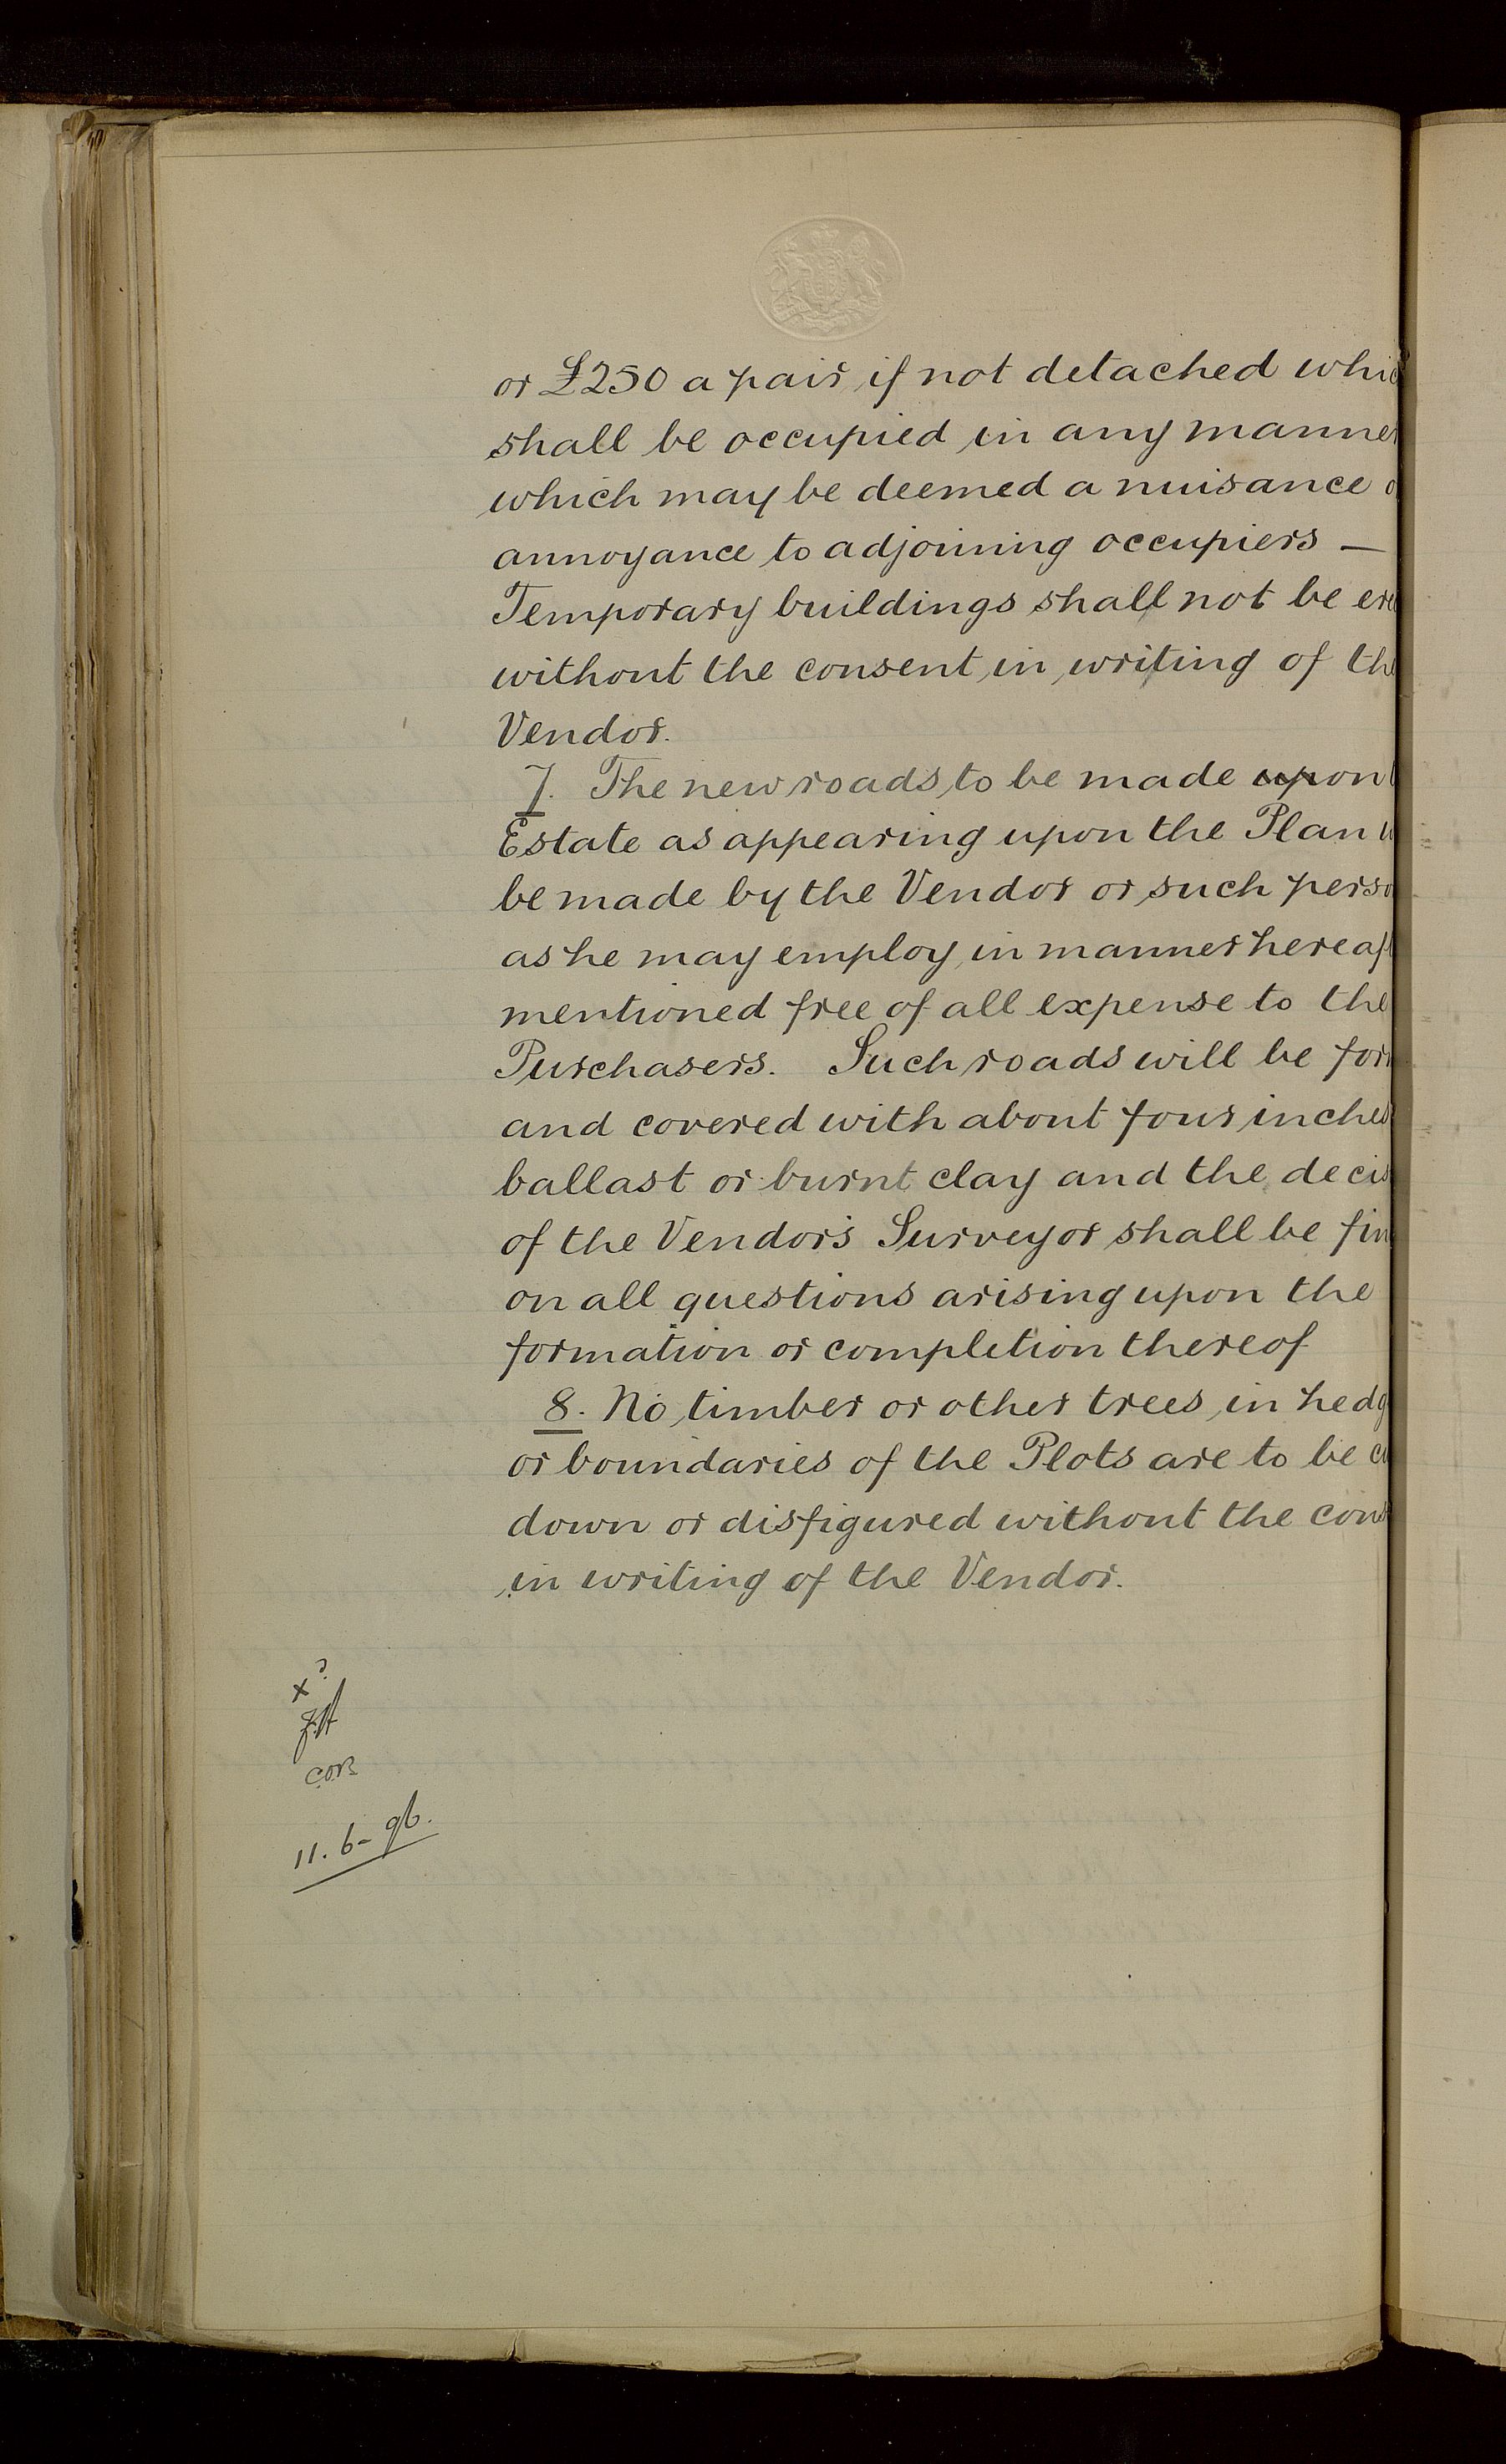 or £250 a pair if not detached whic
shall be occupied in any manner
which may be deemed a nuisance o
annoyance to adjoining occupiers —
Temporary buildings shall not be ere
without the consent in writing of the
Vendor.
7. The new roads to be made upon t
Estate as appearing upon the Plan w
be made by the Vendor or such perso
as he may employ in manner hereaft
mentioned free of all expense to the
Purchasers. Such roads will be for
and covered with about four inches
ballast or burnt clay and the decis
of the Vendor's Surveyor shall be fin
on all questions arising upon the
formation or completion thereof
8. No timber or other trees in hedg
or boundaries of the Plots are to be cu
down or disfigured without the cons
in writing of the Vendor.
COB
11.6-96.